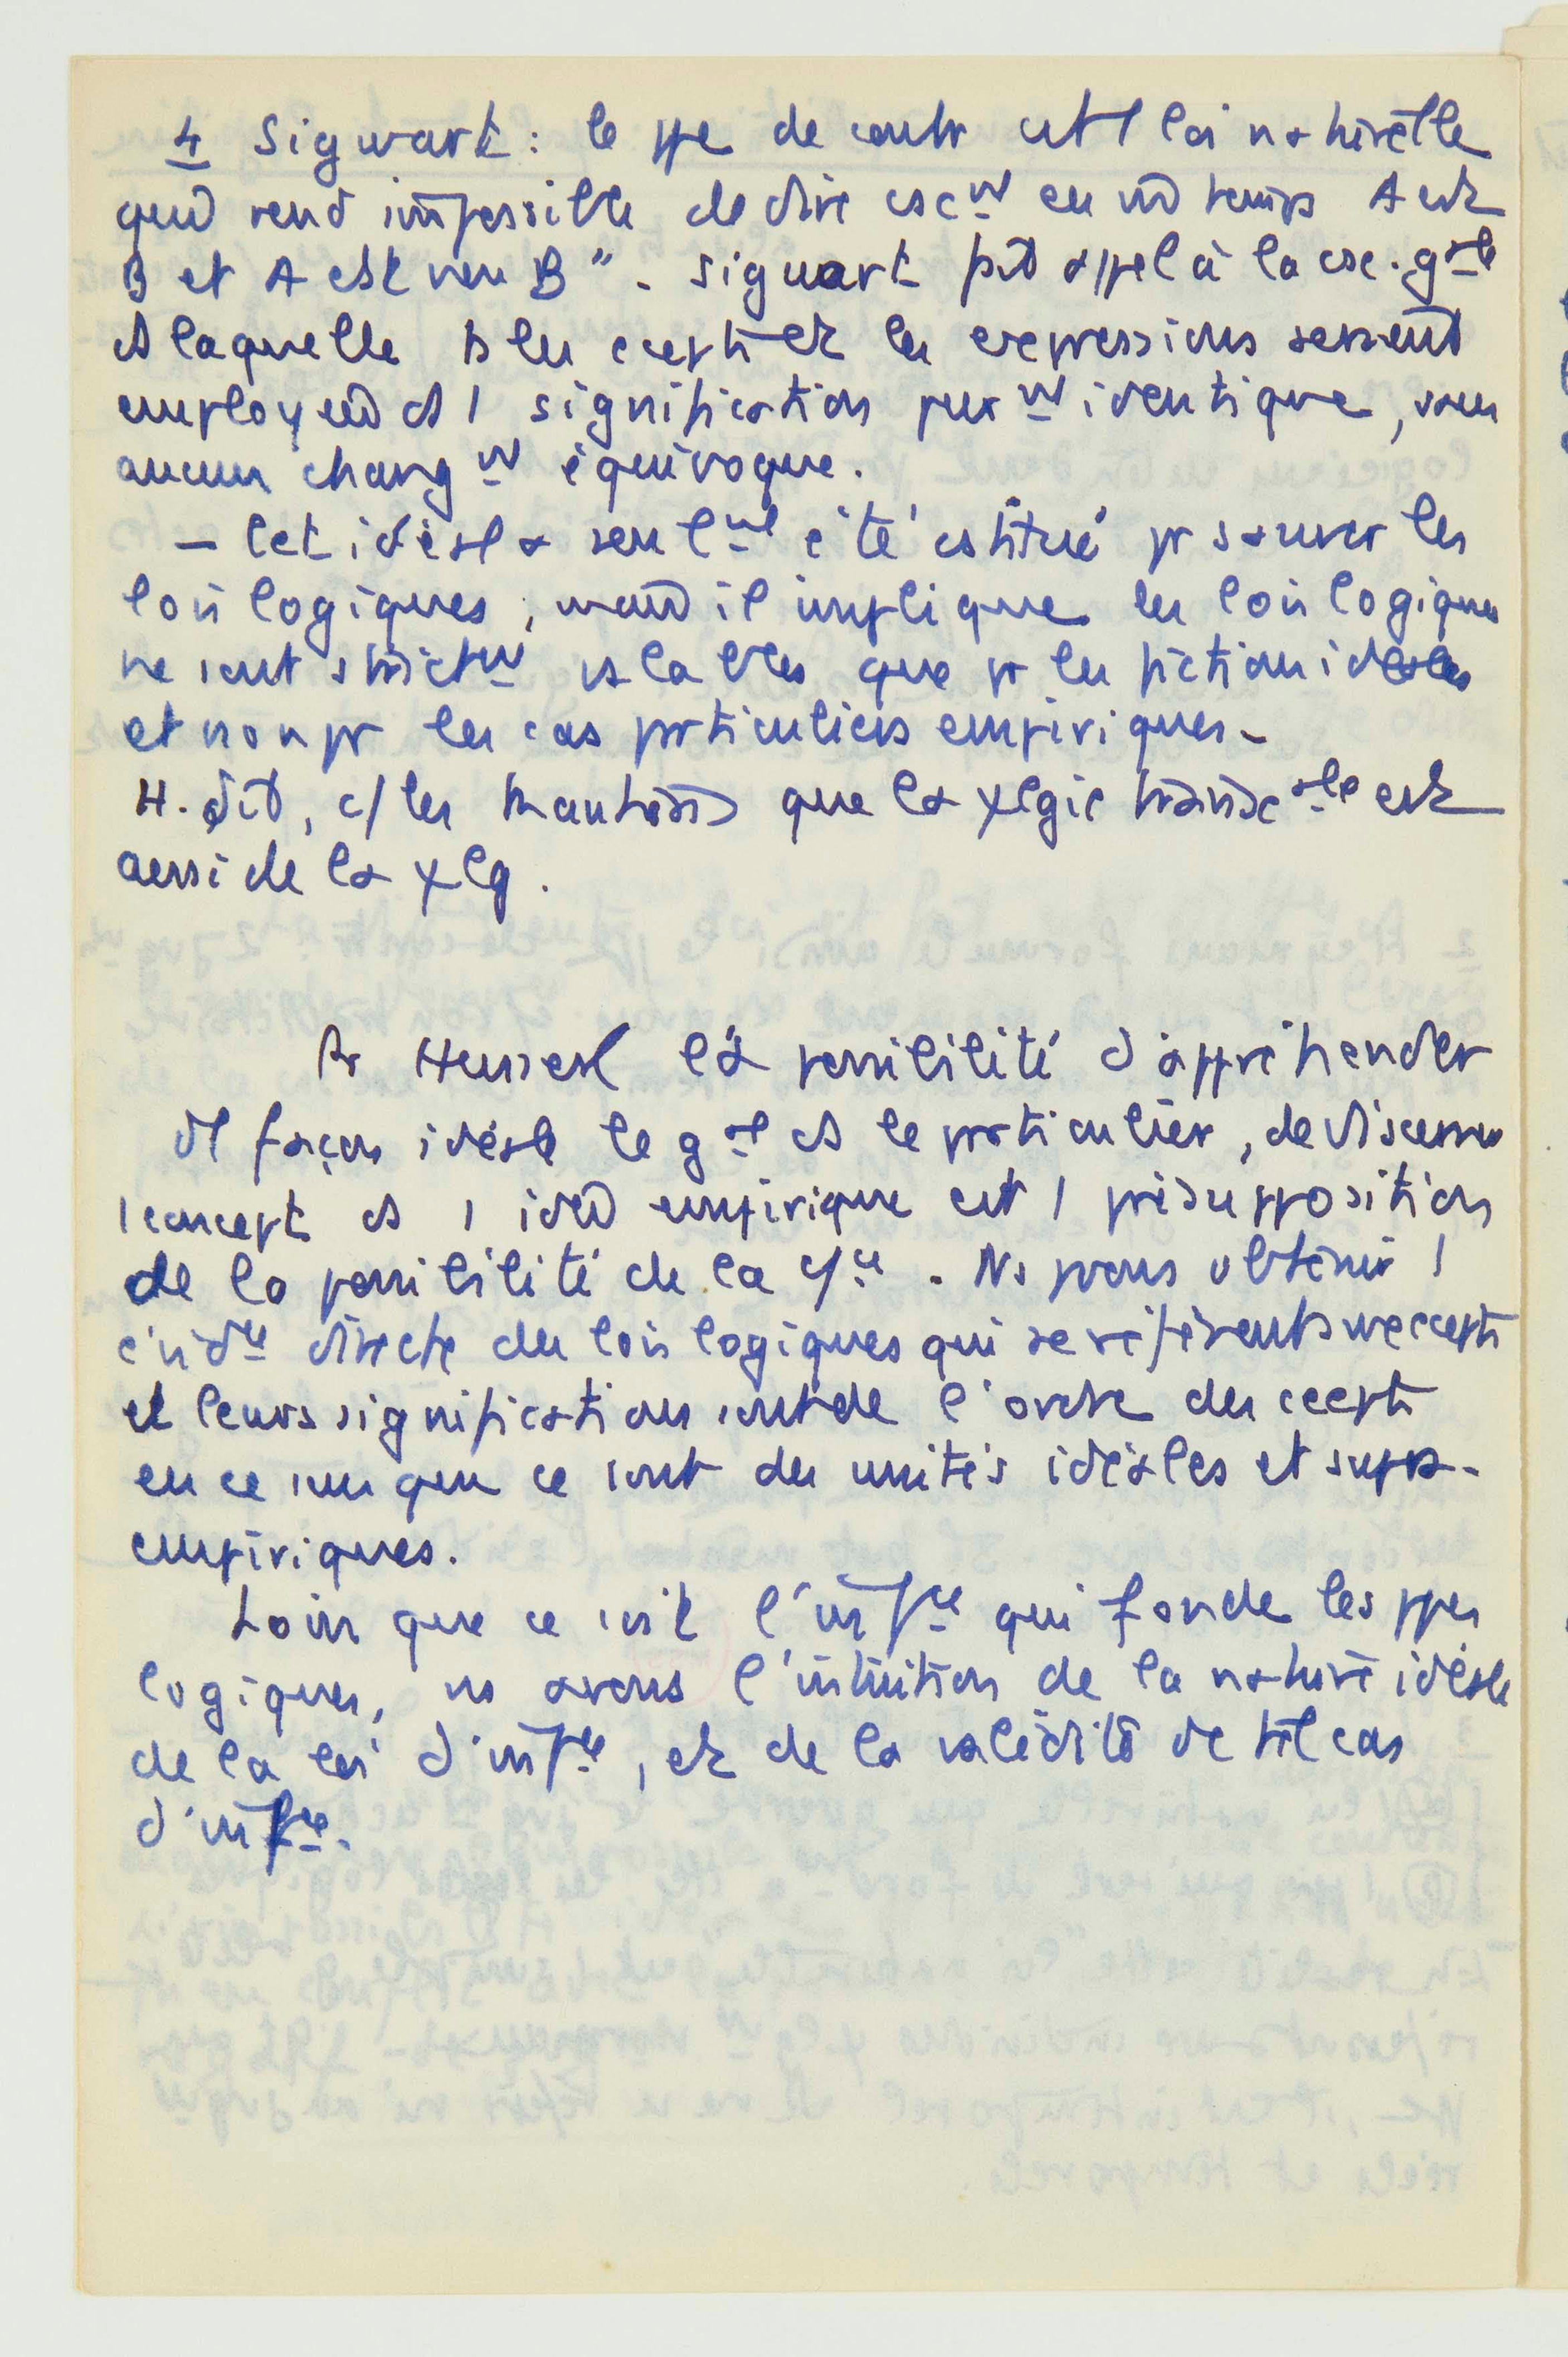 4 Sigwart : le ppe de contr est 1 loi naturelle
qui rend impossible de dire csc^mt en m̂ temps A est
B et A est non B". Sigwart fait appel à la csc. g^ale
ds laquelle ts les ccepts et les expressions seraient
employés ds 1 signification parf^mt identique, sans
aucun chang^mt équivoque.
— Cet idéal a seul^mt été cstitué pr sauver les
lois logiques ; mais il implique les lois logiques
ne sont strict^mt valables que pr les fictions idéales
et non pr les cas particuliers empiriques -
H. dit, c/ les Kantiens que la ψlgie transc^ale est
aussi de la ψlg.
Pr Husserl la possibilité d'appréhender
d1 façon idéale le g^al ds le particulier, de discerner
1 concept ds 1 idée empirique est 1 présupposition
de la possibilité de la c/^ce. Ns pvons obtenir 1
évid^ce directe des lois logiques qui se réfèrent aux ccepts
et leurs significations sont de l'ordre des ccepts
en ce sens que ce sont des unités idéales et supra-
empiriques.
Loin que ce soit l'inf^ce qui fonde les ppes
logiques, ns avons l'intuition de la nature idéale
de la loi d'inf^ce, et de la validité de tel cas
d'inf^ce.